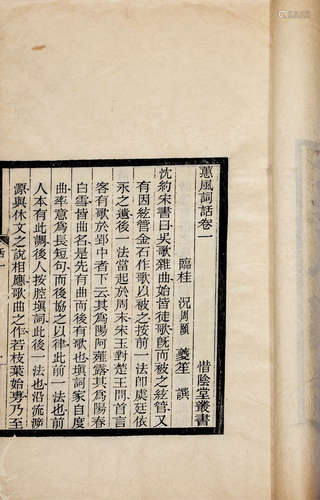 蕙風詞話卷一
惜陰堂叢書
臨桂 況周頤 夔笙 譔
沈約宋書曰吳歌雜曲始皆徒歌旣而被之絃管又
有因絃管金石作歌以被之按前一法卽虞廷依
永之遺後一法當起於周末宋玉對楚王問首言
客有歌於郢中者下云其爲陽阿薤露其爲陽春
白雪皆曲名是先有曲而後有歌也填詞家自度
曲率意爲長短句而後協之以律此前一法也前
人本有此調後人按腔填詞此後一法也沿流溯
源與休文之說相應歌曲之作若枝葉始尃乃至